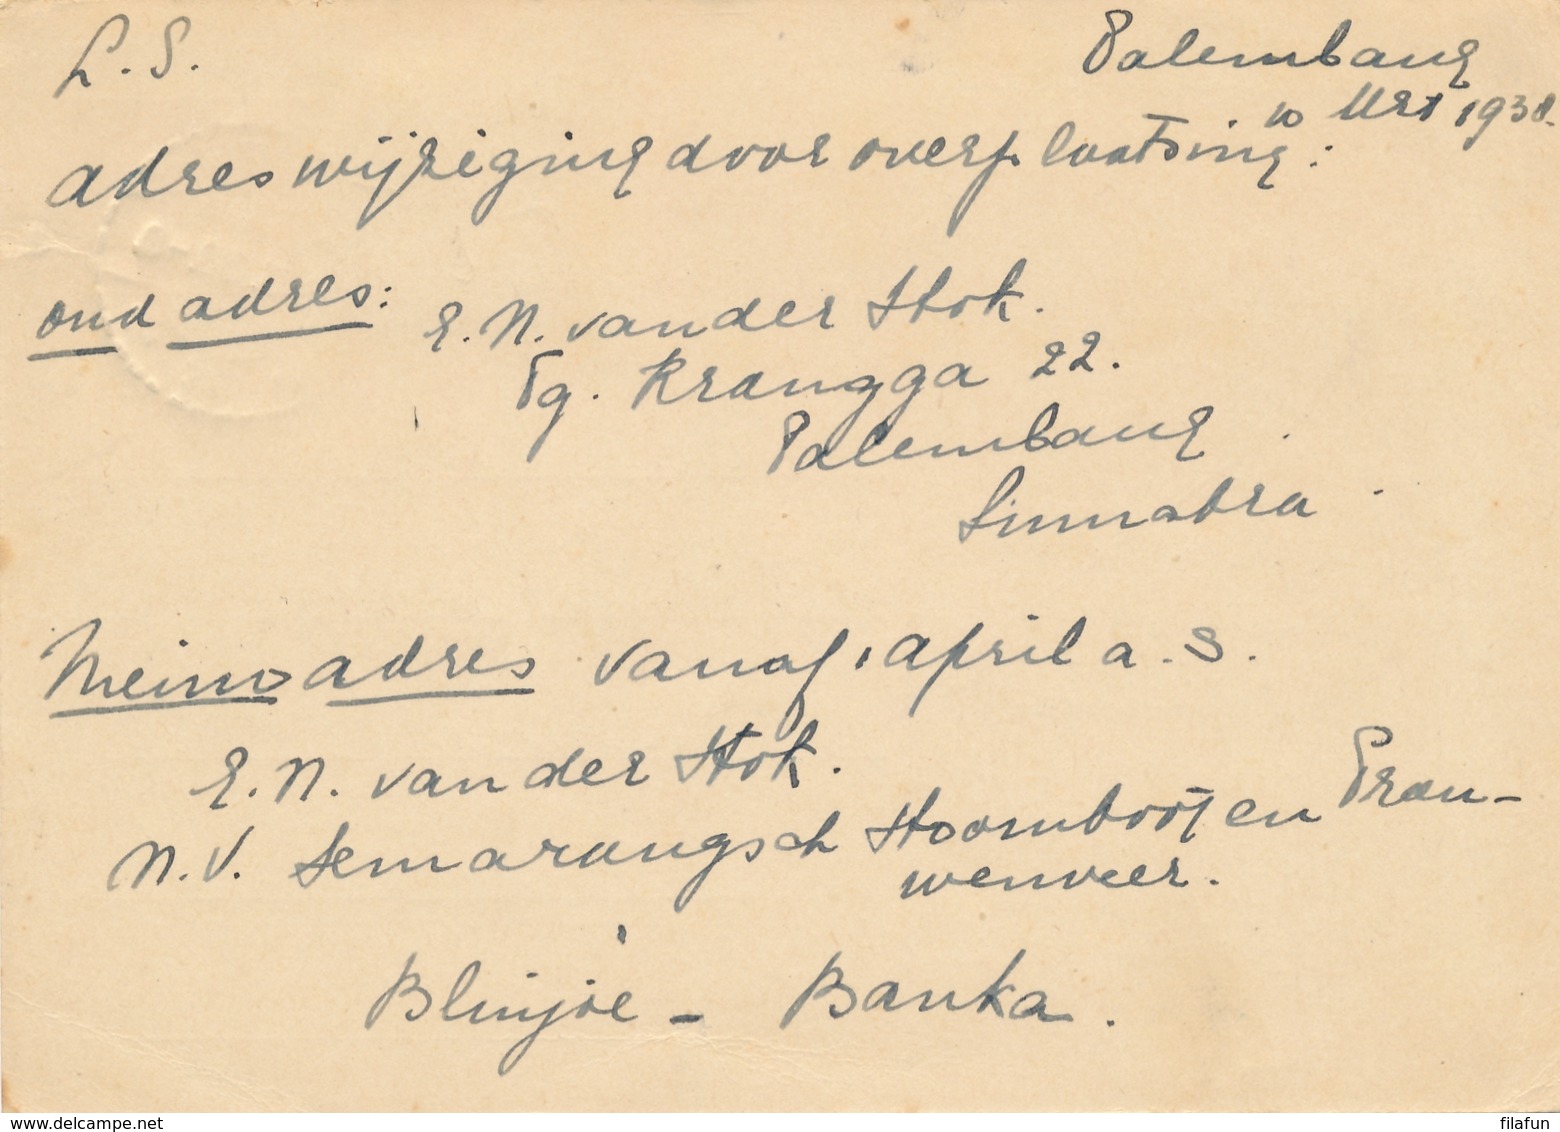 L.S.
Palembang
10 Mrt 1938.
adreswijziging door overplaatsing:
oud adres:
E.N. van der Stok.
Tg. Krangga 22.
Palembang
Sumatra
Nieuw adres vanaf 1 april a.s.
E.N. van der Stok.
N.V. Semarangsch Stoomboot en Prau-
wenveer.
Blinjoe - Banka.
www.delcampe.net
filafun